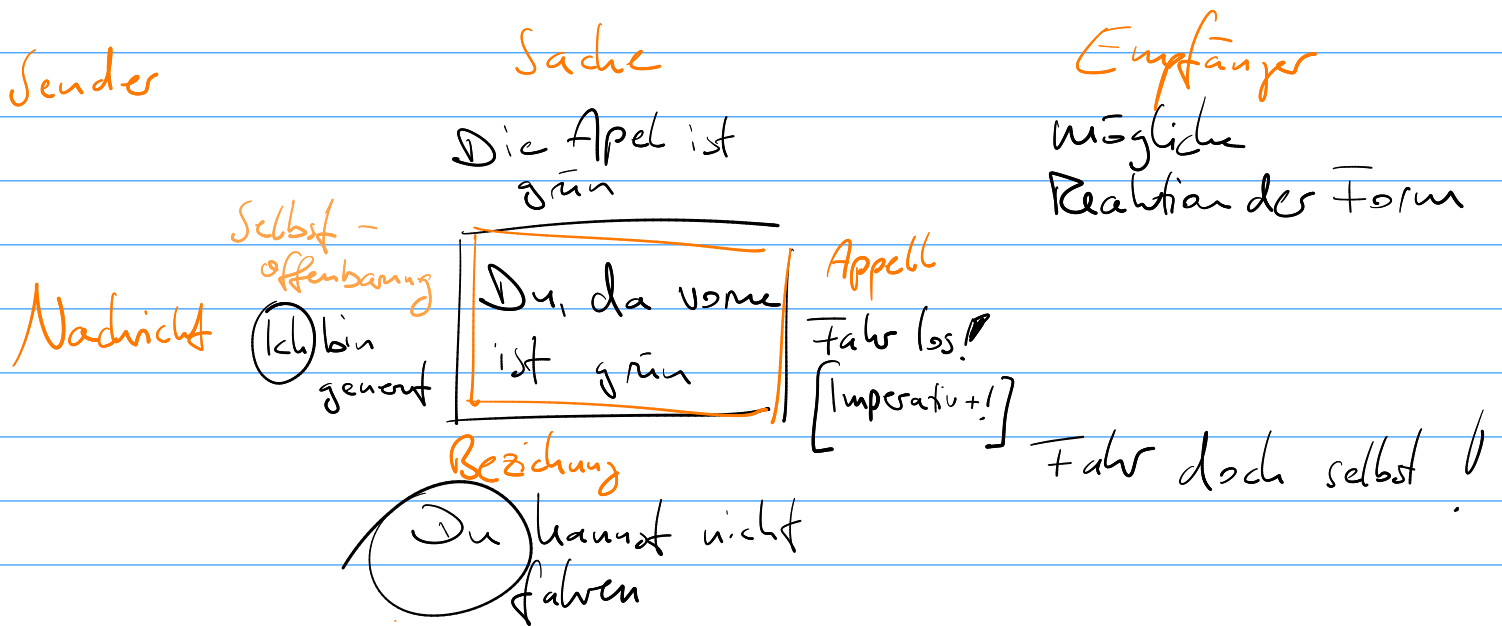 Sender
Sache
Empfänger
Die Apel ist
grün
mögliche
Reaktion der Form
Selbst-
offenbarung
Nachricht
Ich bin
genervt
Du, da vorne
ist grün
Appell
Fahr los!
[Imperativ+!]
Beziehung
Du kannst nicht
fahren
Fahr doch selbst!